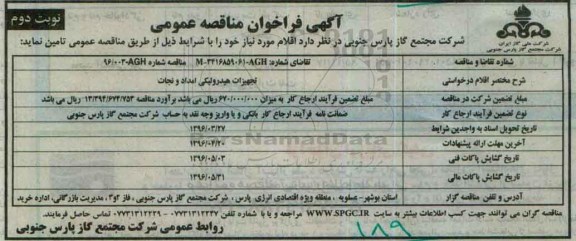 آگهی فراخوان مناقصه عمومی
نوبت دوم
شرکت ملی گاز ایران
شرکت مجتمع گاز پارس جنوبی
شرکت مجتمع گاز پارس جنوبی در نظر دارد اقلام مورد نیاز خود را با شرایط ذیل از طریق مناقصه عمومی تامین نماید:
شماره تقاضا و مناقصه	تقاضای شماره: M-۳۴۱۶۸۵۹۰۶۱-AGH	شماره مناقصه: ۹۶/۰۰۳-AGH
شرح مختصر اقلام درخواستی	تجهیزات هیدرولیکی امداد و نجات
مبلغ تضمین شرکت در مناقصه	مبلغ تضمین فرآیند ارجاع کار به میزان ۶۷۰/۰۰۰/۰۰۰ ریال می باشد برآورد مناقصه ۱۳/۳۹۴/۶۷۴/۷۵۳ ریال می باشد
نوع تضمین فرآیند ارجاع کار	ضمانت نامه فرآیند ارجاع کار بانکی و یا واریز وجه نقد به حساب شرکت مجتمع گاز پارس جنوبی
تاریخ تحویل اسناد به واجدین شرایط	۱۳۹۶/۰۳/۲۷
آخرین مهلت ارائه پیشنهادات	۱۳۹۶/۰۴/۲۰
تاریخ گشایش پاکات فنی	۱۳۹۶/۰۵/۰۳
تاریخ گشایش پاکات مالی	۱۳۹۶/۰۵/۳۱
آدرس و تلفن مناقصه گزار	استان بوشهر- عسلویه ، منطقه ویژه اقتصادی انرژی پارس ، شرکت مجتمع گاز پارس جنوبی ، فاز ۲و۳، مدیریت بازرگانی، اداره خرید
مناقصه گران می توانند جهت کسب اطلاعات بیشتر به سایت WWW.SPGC.IR مراجعه و یا با شماره تلفن ۰۷۷۳۱۳۱۲۲۳۷ - ۰۷۷۳۱۳۱۲۲۲۹ تماس حاصل فرمایند.
روابط عمومی شرکت مجتمع گاز پارس جنوبی
ParsNamadData
۱۸۹